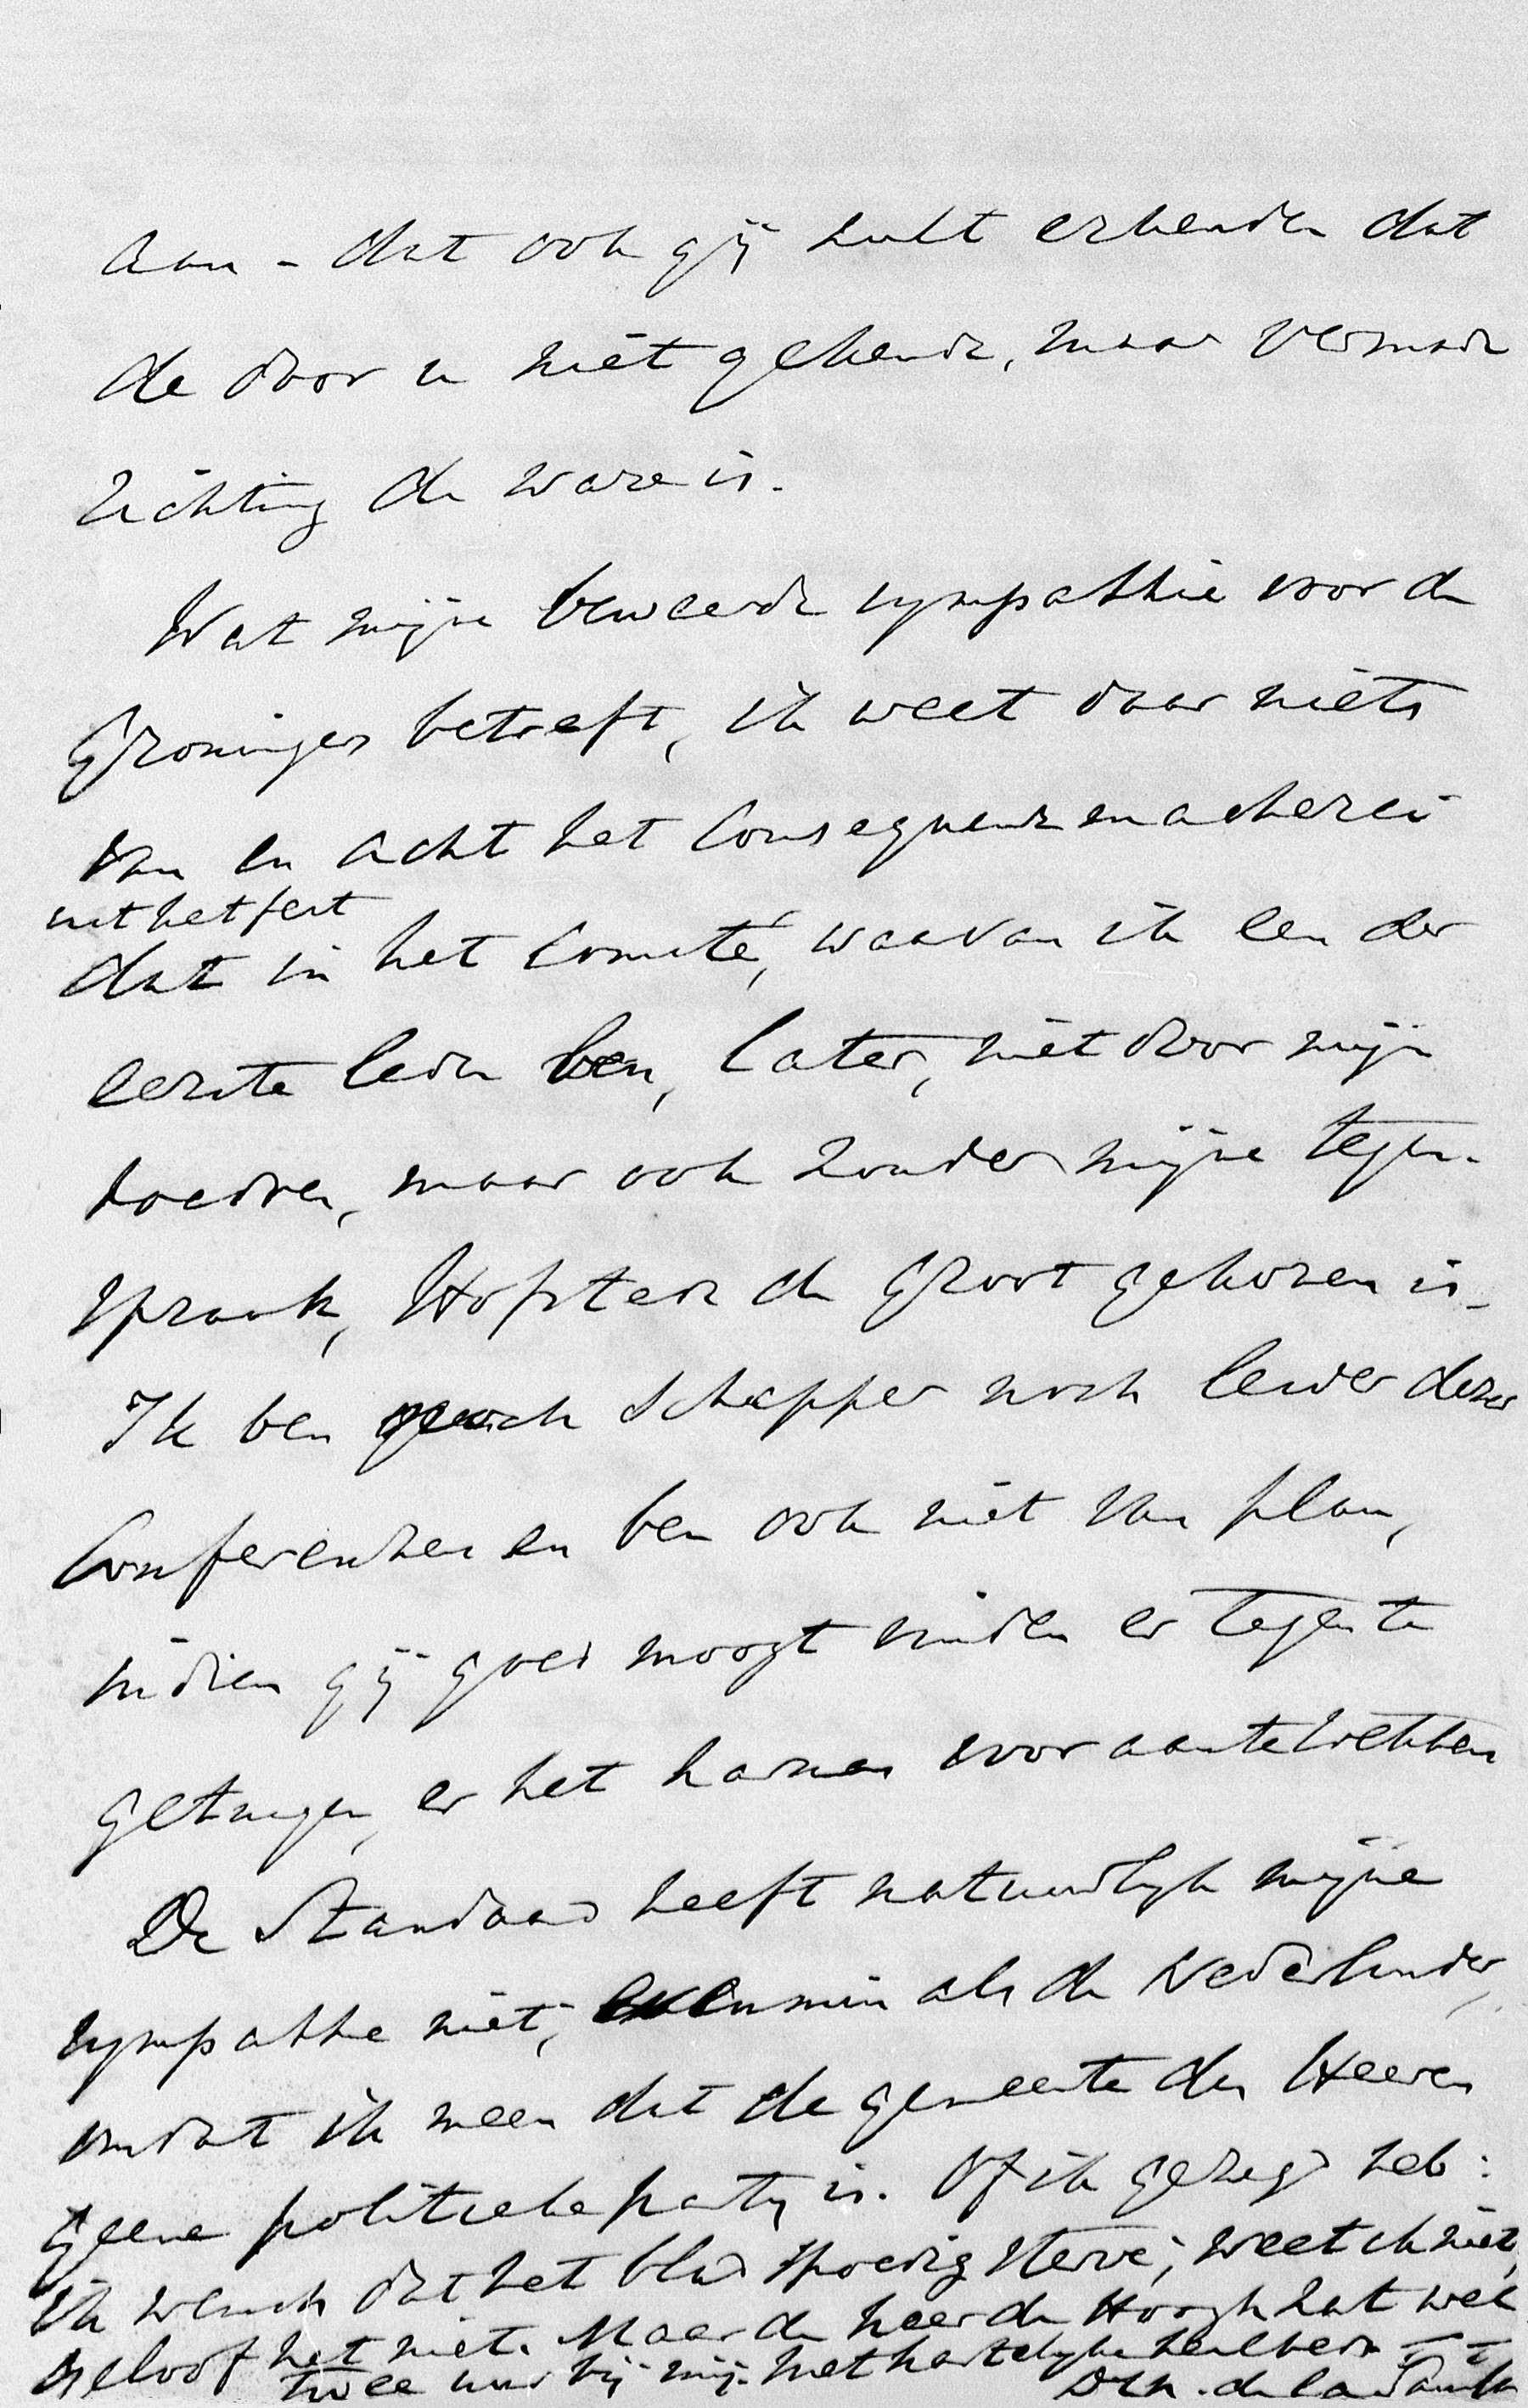 aan - dat ook gij zult erkennen dat
de door u niet gekende, maar versmade
richting de ware is.
Wat mijne beweerde sympathie voor de
Groningers betreft, ik weet daar niets
van en acht het Consequenzmacherei
uit het feit
dat in het Comité, waarvan ik een der
eerste leden ben, later, niet door mijn
toedoen, maar ook zonder mijne tegen-
spraak, Hofstede de Groot gekozen is -
Ik ben noch Schepper noch leider dezer
Conferentien en ben ook niet van plan,
indien gij goed moogt vinden er tegen te
getuigen, er het harnas voor aan te trekken
De Standaard heeft natuurlijk mijne
sympathie niet, evenmin als de Nederlander,
omdat ik meen dat de gemeente des Heeren
geene politieke partij is. Of ik gezegd heb:
ik wensch dat het blad spoedig sterve, weet ik niet,
geloof het niet. Maar de heer de Hoogh zat wel
twee uur bij mij. Met hartelijke heilbede T T
D Ch. de la Saussaye